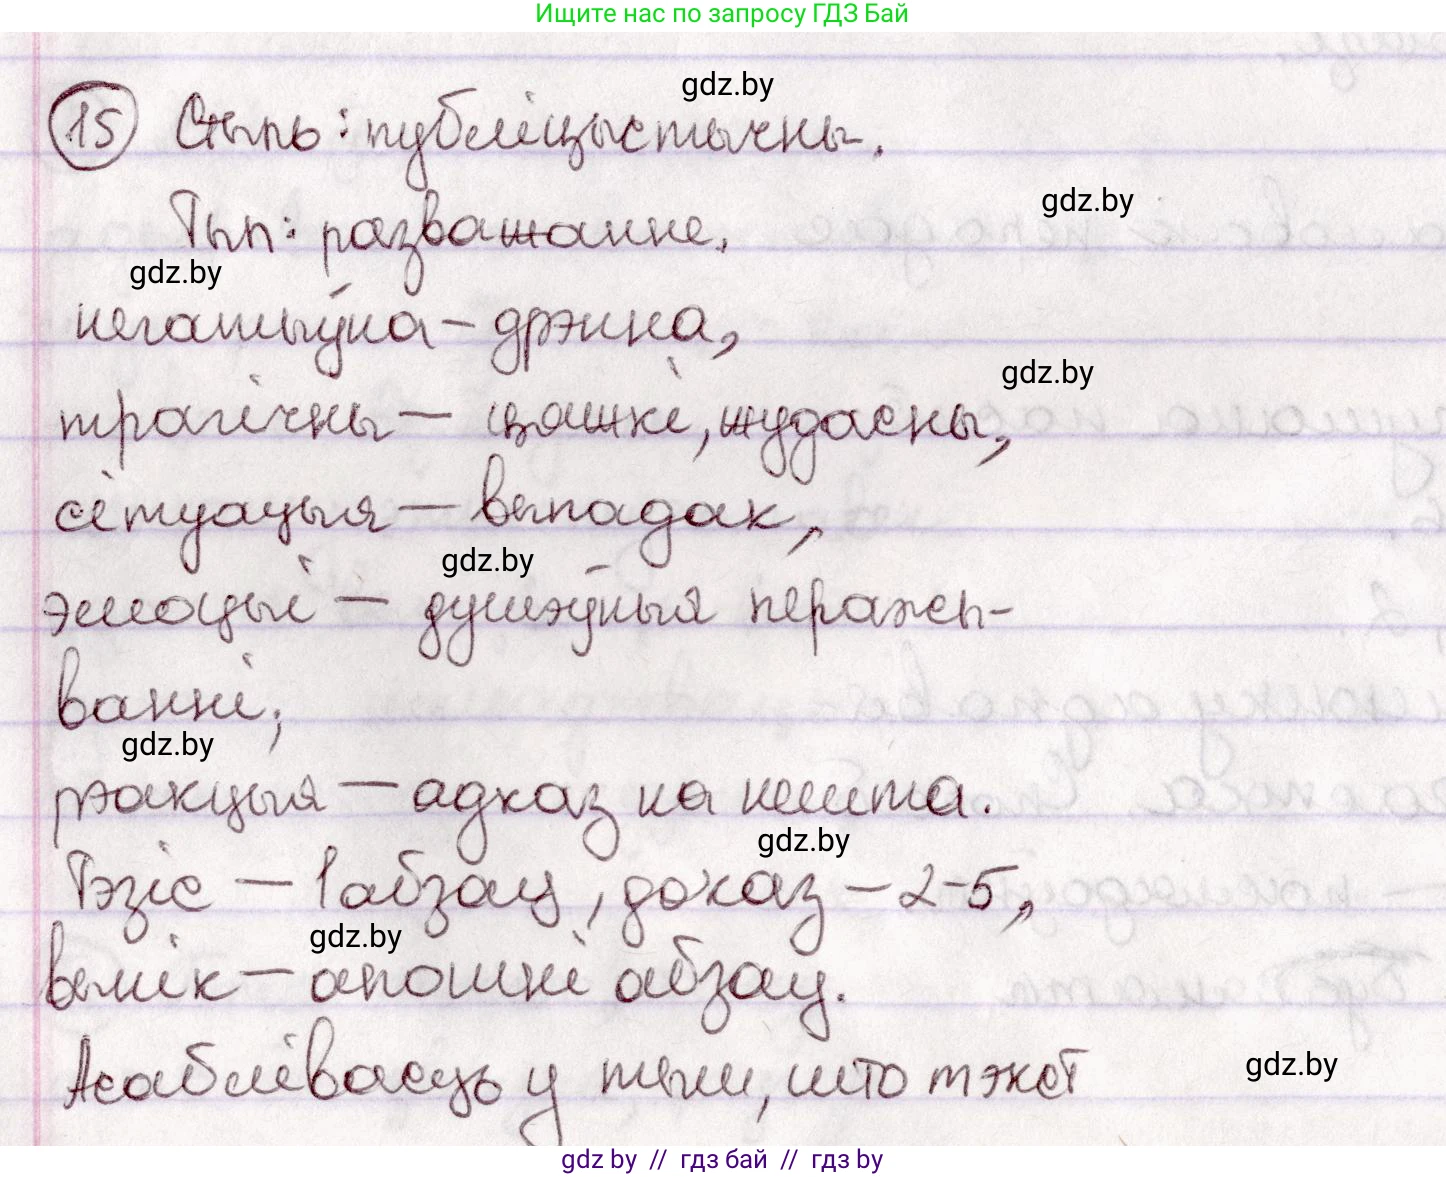 Ищите нас по запросу ГДЗ Бай
gdz.by
15 Стыль: публіцыстычны.
gdz.by
Тып: разважанне.
gdz.by
негатыўна – дрэнна,
gdz.by
трагічны — цяжкі, жудасны,
сітуацыя — выпадак,
gdz.by
эмоцыі — душэўныя перажы-
ванні,
gdz.by
рэакцыя — адказ на нешта.
gdz.by
Тэзіс — 1 абзац, доказ – 2-5,
gdz.by
вынік — апошні абзац.
Асаблівасць у тым, што тэкст
gdz.by
gdz by // гдз бай // гдз by